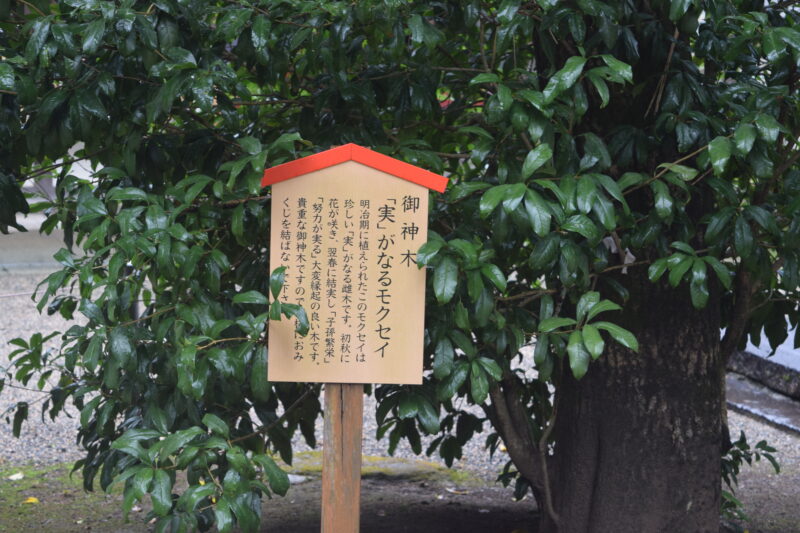 御神木
「実」がなるモクセイ
明治期に植えられたこのモクセイは
珍しい「実」がなる雌木です。初秋に
花が咲き、翌春に結実し「子孫繁栄」
「努力が実る」大変縁起の良い木です。
貴重な御神木ですので、 におみ
くじを結ばない